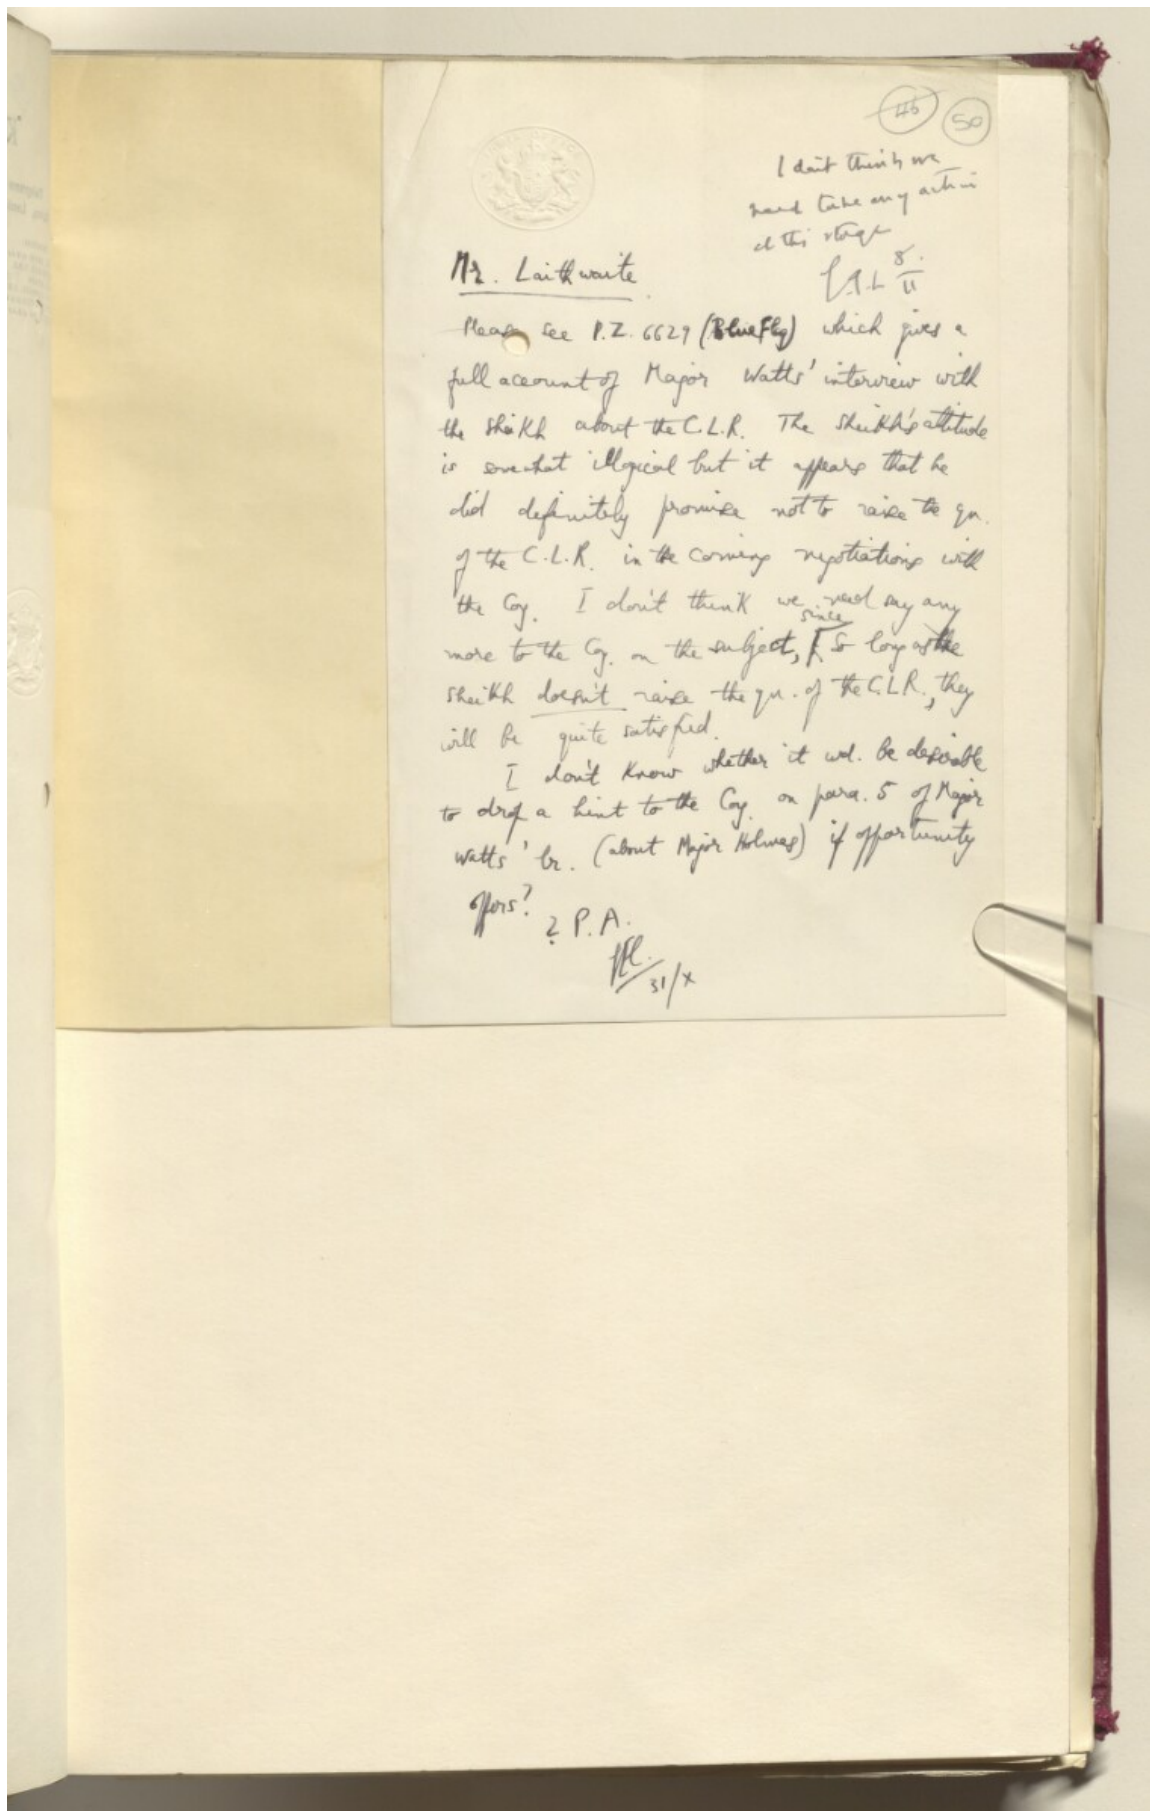 46 50
I don't think we
need take any action
at this stage
8/11
Mr. Laithwaite
Please see P.Z. 6629 (Blue Flag) which gives a
full account of Major Watts' interview with
the sheikh about the C.L.R. The sheikh's attitude
is somewhat illogical but it appears that he
did definitely promise not to raise the qn.
of the C.L.R. in the coming negotiations with
the Coy. I don't think we need say any
more to the Coy. on the subject, since so long as the
sheikh doesn't raise the qn. of the C.L.R., they
will be quite satisfied.
I don't know whether it wd. be desirable
to drop a hint to the Coy. on para. 5 of Major
Watts' lr. (about Major Holmes) if opportunity
offers?
? P.A.
31/X